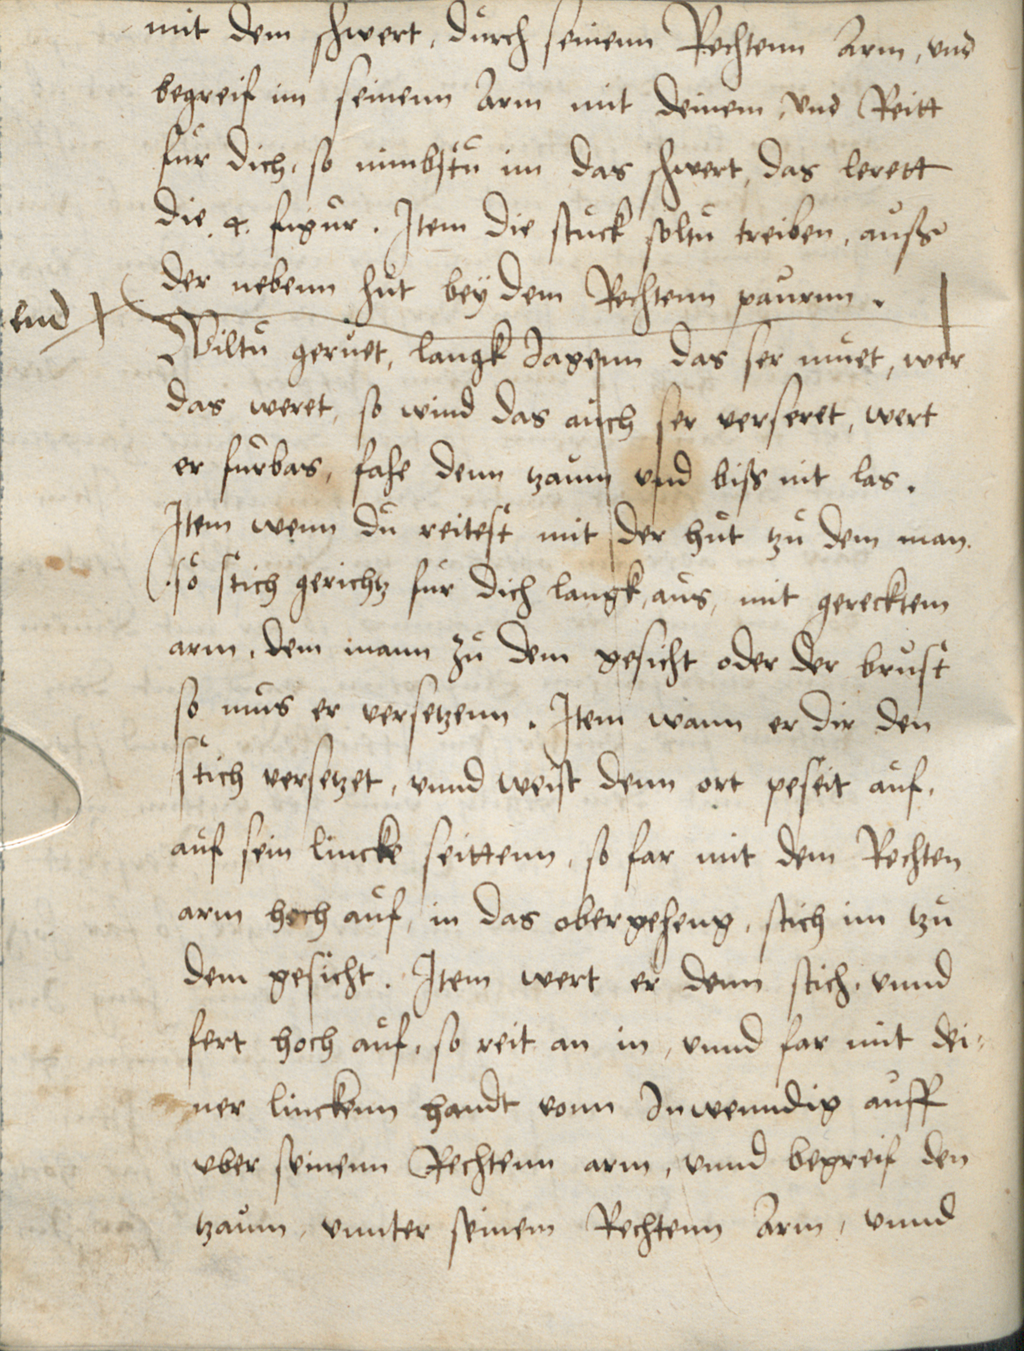 mit dem schwert, durch seinenn Rechtenn Arm, vnd
begreif im seinenn Arm mit deinem, vnd Reitt
fur dich, so nimbstu im das schwert, das lerett
die .4. figur. Item die stuck soltu treiben, auss
der nebenn hut bey dem Rechtenn paurnn.
end
Wiltu geruet, langk Jagenn das ser muet, wer
das weret, so wind das auch ser verseret, wert
er furbas, fahe denn tzaum vnd biss nit las.
Item wenn du reitest mit der hut tzu dem man.
so stich gerichtz fur dich langk, aus, mit gerecktem
arm, dem mann zu dem gesicht oder der brust
so mus er versetzenn. Item wann er dir den
stich versetzet, vnnd weist denn ort peseit auf,
auf sein lincke seittenn, so far mit dem Rechten
arm hoch auf, in das obergeheng, stich im tzu
dem gesicht. Item wert er denn stich, vnnd
fert hoch auf, so reit an in, vnnd far mit dei-
ner linckenn handt vonn Inwenndig auff
vber seinenn Rechtenn arm, vnnd begreif den
tzaum, vnnter seinem Rechtenn Arm, vnnd